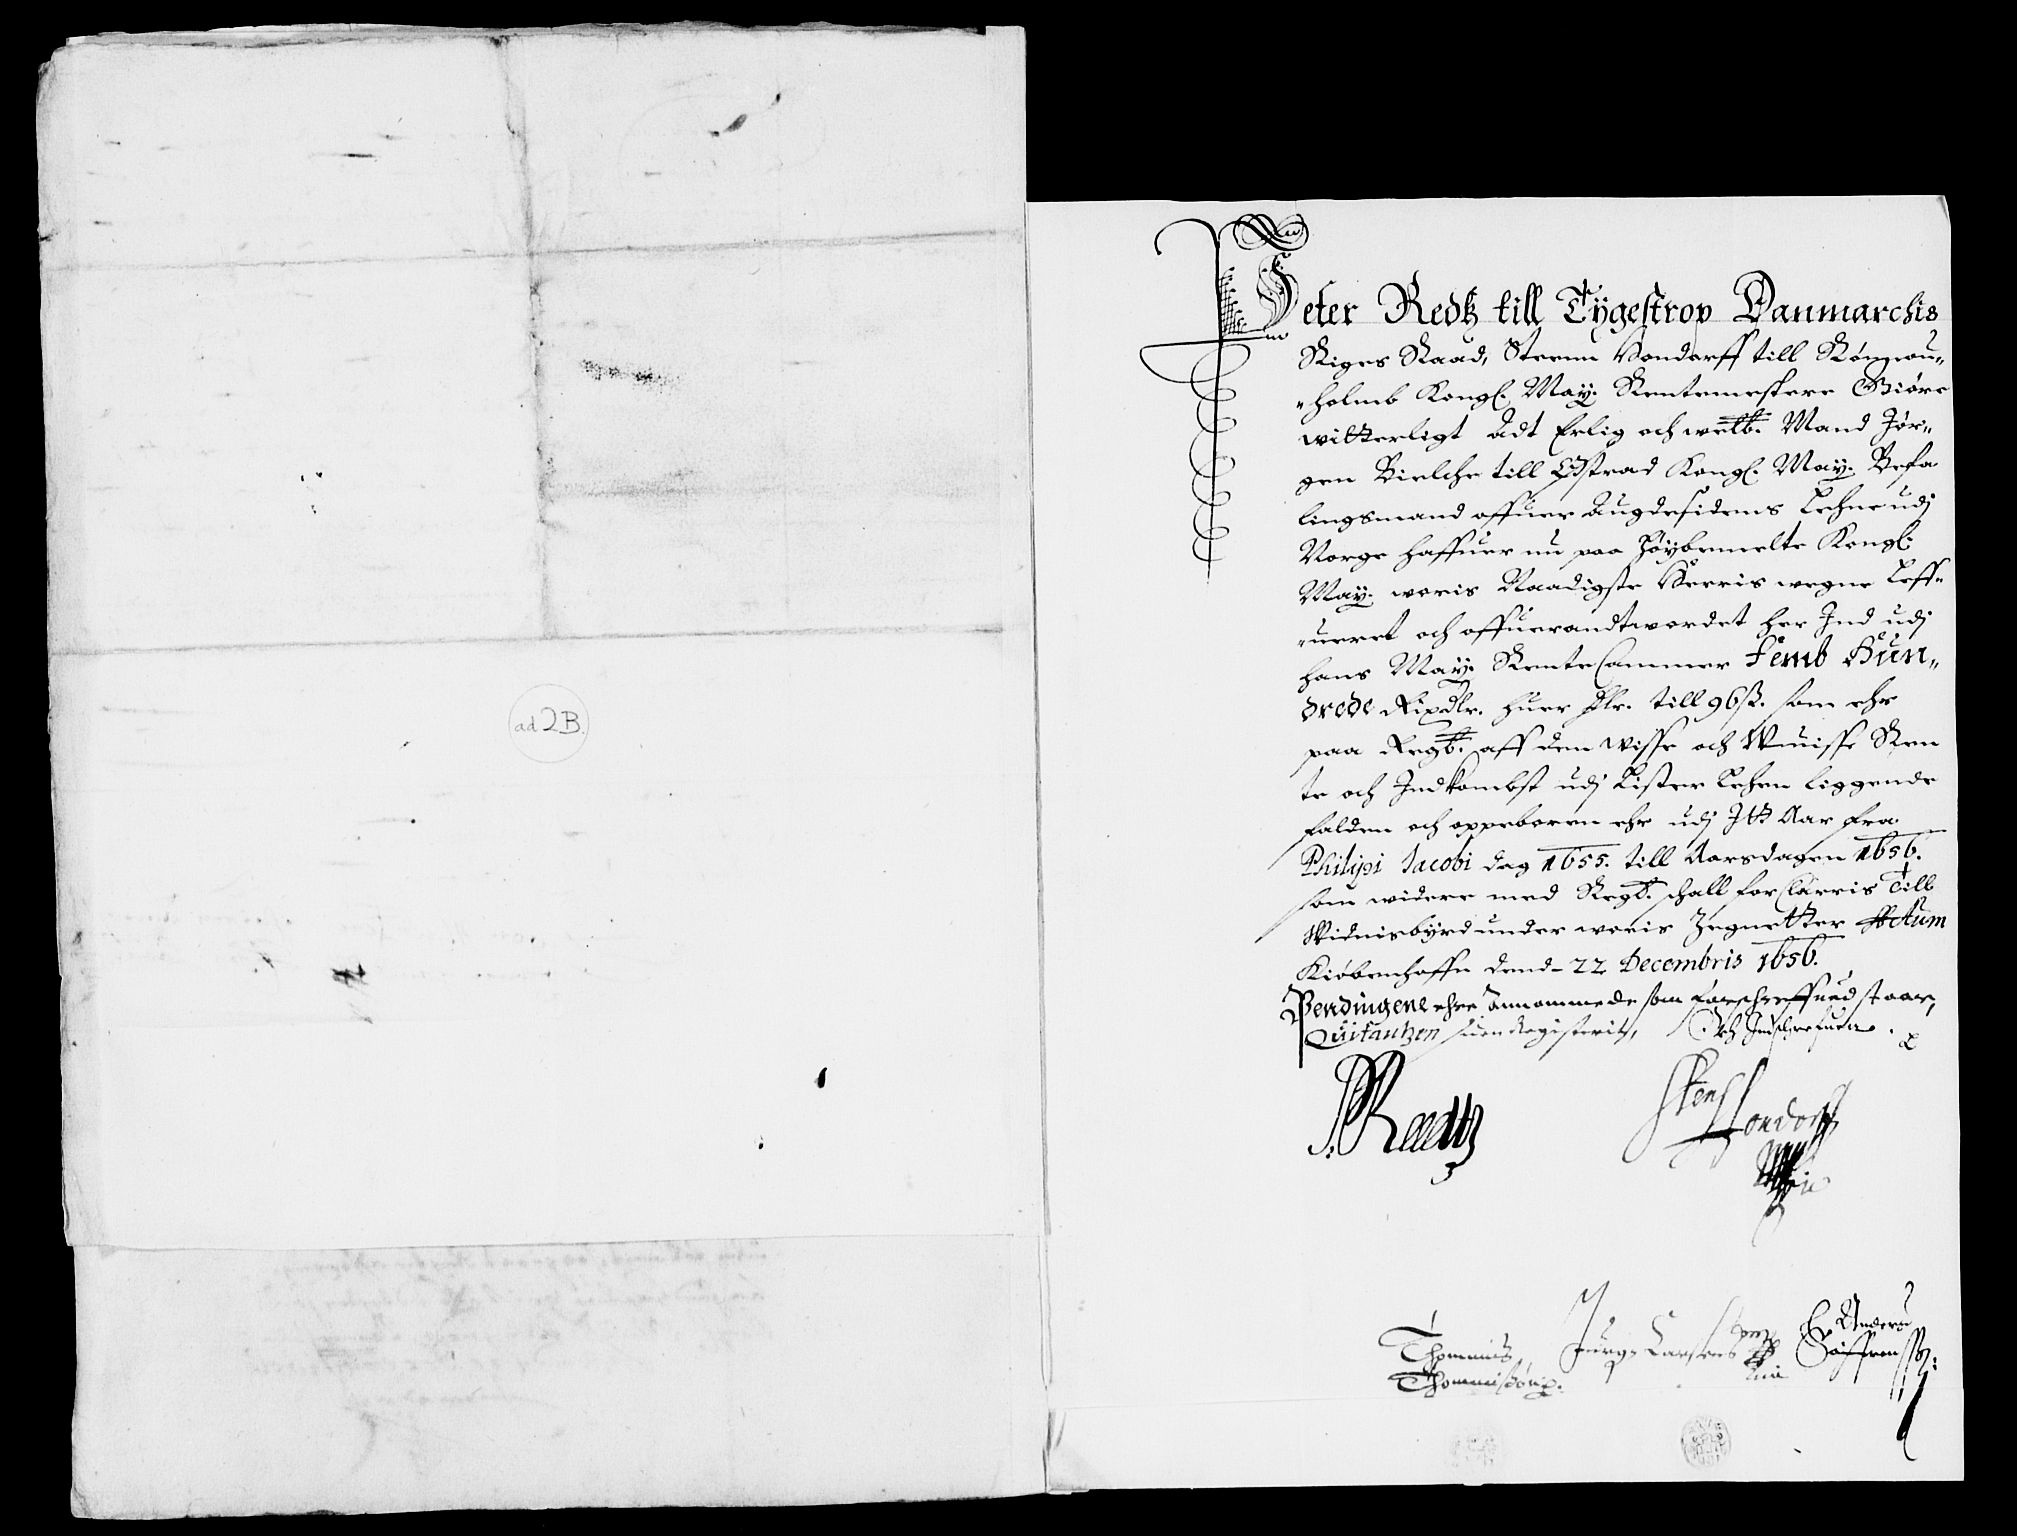 ad 2B.
Peter Redtz till Tygestrop Danmarchis
Riges Raad, Steenn Hondorff till Rønnou„
„holmb Kongl. May. Rentemestere Giøre
witterligt Adt Erlig och welb. Mand Jør„
gen Bielche till Østrad Kongl. May. Befa
lingsmand offuer Augdesidens Lehne udj
Norge haffuer nu paa høybemelte Kongl.
May. woris Naadigste Herris wegne Leff„
„ueret och offuerandtwordet her Ind udj
hans May. Rente Cammer Femb Hun„
drede Rixdlr. huer dlr. till 96 ß. som ehr
paa Regb. aff den wisse och Wuisse Ren
te och Indkombst udj Lister Lehen liggende
falden och oppeboren ehr udj Itt Aar fra
Philipi Jacobi dag 1655. till Aarsdagen 1656.
som widere med Regb. schall forClarris Till
Widnisbyrd under woris Zegnetter Actum
Kiøbenhaffn dend 22 Decembris 1656.
Pendingene ehre Annammede som forschreffued staar,
Quitantzen Registerit, Och Indschrefuen.
P Reedtz
Sten
Hondorff
Thommis Jurgen Laursens Anders
Thommisøn Søffrenss: